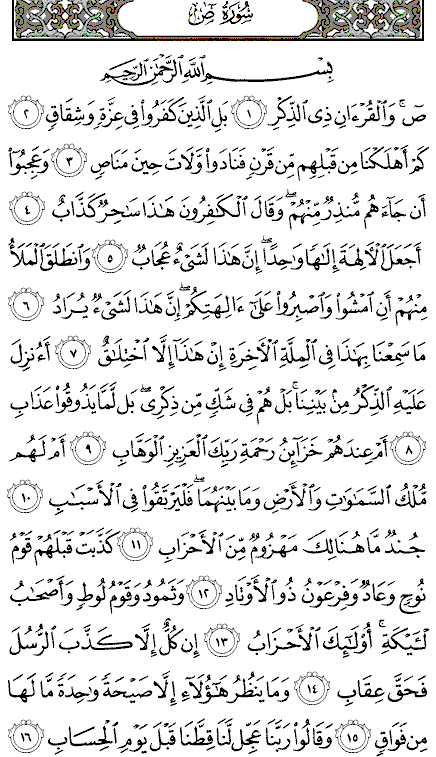 سُورَةُ صٓ
بِسْمِ ٱللَّهِ ٱلرَّحْمَٰنِ ٱلرَّحِيمِ
صٓ ۚ وَٱلْقُرْءَانِ ذِى ٱلذِّكْرِ ١ بَلِ ٱلَّذِينَ كَفَرُوا۟ فِى عِزَّةٍ وَشِقَاقٍ ٢
كَمْ أَهْلَكْنَا مِن قَبْلِهِم مِّن قَرْنٍ فَنَادَوا۟ وَّلَاتَ حِينَ مَنَاصٍ ٣ وَعَجِبُوٓا۟
أَن جَآءَهُم مُّنذِرٌ مِّنْهُمْ ۖ وَقَالَ ٱلْكَٰفِرُونَ هَٰذَا سَٰحِرٌ كَذَّابٌ ٤
أَجَعَلَ ٱلْءَالِهَةَ إِلَٰهًا وَٰحِدًا ۖ إِنَّ هَٰذَا لَشَىْءٌ عُجَابٌ ٥ وَٱنطَلَقَ ٱلْمَلَأُ
مِنْهُمْ أَنِ ٱمْشُوا۟ وَٱصْبِرُوا۟ عَلَىٰٓ ءَالِهَتِكُمْ ۖ إِنَّ هَٰذَا لَشَىْءٌ يُرَادُ ٦
مَا سَمِعْنَا بِهَٰذَا فِى ٱلْمِلَّةِ ٱلْءَاخِرَةِ إِنْ هَٰذَآ إِلَّا ٱخْتِلَٰقٌ ٧ أَءُنزِلَ
عَلَيْهِ ٱلذِّكْرُ مِنۢ بَيْنِنَا ۚ بَلْ هُمْ فِى شَكٍّ مِّن ذِكْرِى ۖ بَل لَّمَّا يَذُوقُوا۟ عَذَابِ
٨ أَمْ عِندَهُمْ خَزَآئِنُ رَحْمَةِ رَبِّكَ ٱلْعَزِيزِ ٱلْوَهَّابِ ٩ أَمْ لَهُم
مُّلْكُ ٱلسَّمَٰوَٰتِ وَٱلْأَرْضِ وَمَا بَيْنَهُمَا ۖ فَلْيَرْتَقُوا۟ فِى ٱلْأَسْبَٰبِ ١٠
جُندٌ مَّا هُنَالِكَ مَهْزُومٌ مِّنَ ٱلْأَحْزَابِ ١١ كَذَّبَتْ قَبْلَهُمْ قَوْمُ
نُوحٍ وَعَادٌ وَفِرْعَوْنُ ذُو ٱلْأَوْتَادِ ١٢ وَثَمُودُ وَقَوْمُ لُوطٍ وَأَصْحَٰبُ
لْـَٔيْكَةِ ۚ أُو۟لَٰٓئِكَ ٱلْأَحْزَابُ ١٣ إِن كُلٌّ إِلَّا كَذَّبَ ٱلرُّسُلَ
فَحَقَّ عِقَابِ ١٤ وَمَا يَنظُرُ هَٰٓؤُلَآءِ إِلَّا صَيْحَةً وَٰحِدَةً مَّا لَهَا
مِن فَوَاقٍ ١٥ وَقَالُوا۟ رَبَّنَا عَجِّل لَّنَا قِطَّنَا قَبْلَ يَوْمِ ٱلْحِسَابِ ١٦